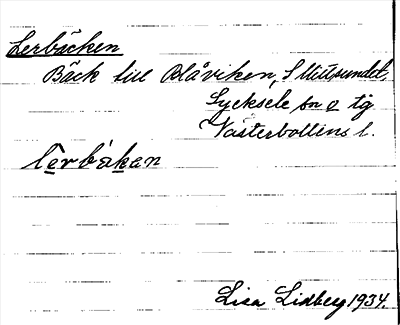 Lerbäcken
Bäck till Blåviken, S Uttersundet,
Lycksele sn o tg
Västerbottens l.
lerbäkan
Lisa Lidberg 1934.